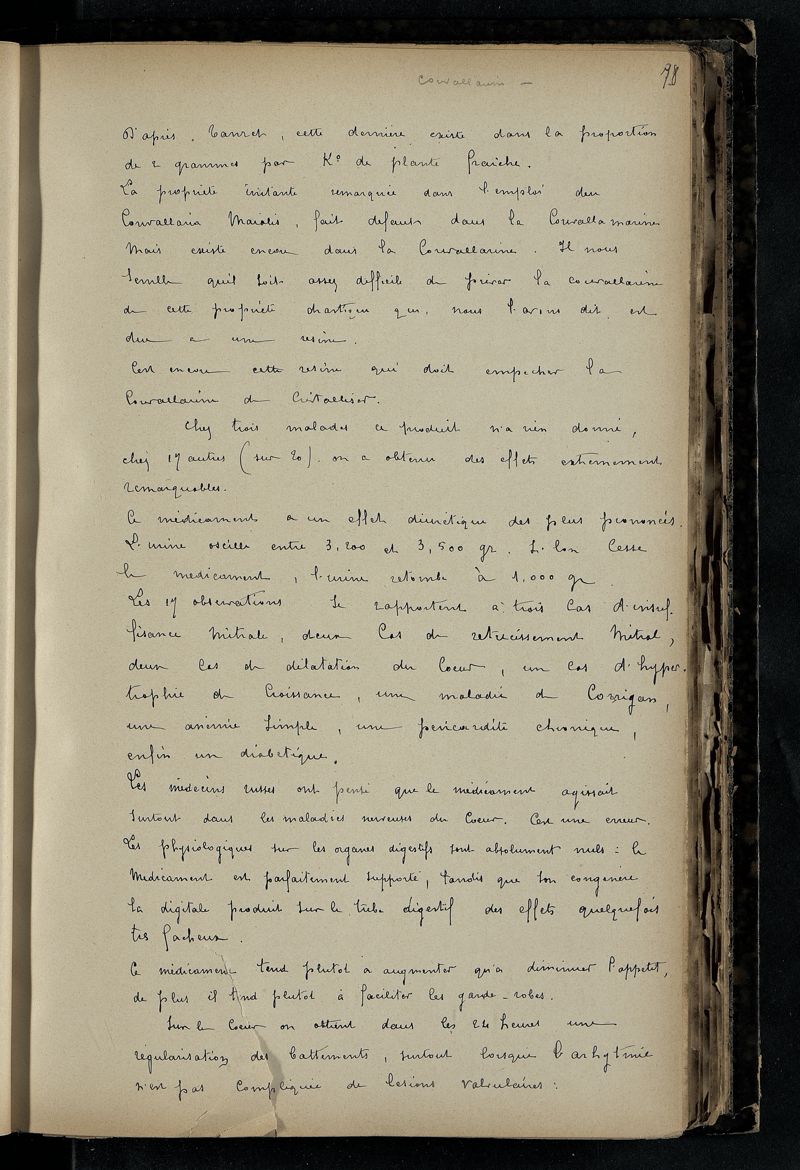 Convallarin —
98
D'après Tanret, cette dernière existe dans la proportion
de 2 grammes par K° de plante fraiche.
La propriété irritante remarquée dans l'emploi du
Convallaria Maialis, fait defaut dans la Convallamarine
Mais existe encore dans la Convallarine. Il nous
semble qu'il soit assez difficile de priver la convallarine
de cette propriété drastique qui, nous l'avons dit, est
due a une resine.
C'est encore cette resine qui doit empecher la
Convallarine de Cristalliser.
Chez trois malades ce produit n'a rien donné,
chez 17 autres (sur 20). on a obtenu des effets extremement
remarquables.
Ce médicament a un effet diurétique des plus prononcés.
L'urine oscille entre 3,200 et 3,500 gr. Si l'on Cesse
le medicament, l'urine retombe à 1.000 gr
Les 17 observations se rapportent a trois Cas d'insuf-
fisance Mitrale, deux Cas de retrecissement Mitral,
deux Cas de dilatation du Coeur, un cas d'hyper-
trophie de Croissance, une maladie de Corrigan,
une anémie Simple, une pericardite chronique,
enfin un diabetique.
Les médecins russes ont pensé que le médicament agissait
surtout dans les maladies nerveuses du Coeur. C'est une erreur.
Les physiologiques sur les organes digestifs sont absolument nuls : le
Medicament est parfaitement supporté, tandis que son congenère
la digitale produit sur le tube digestif des effets quelquefois
très facheux.
Ce médicament tend plutot a augmenter qu'a diminuer l'appetit,
de plus il tend plutot à faciliter les garde-robes.
Sur le Coeur on obtient dans les 24 heures une
régularisation des battements, surtout lorsque l'arhytmie
n'est pas Compliquée de lesions valvulaires :